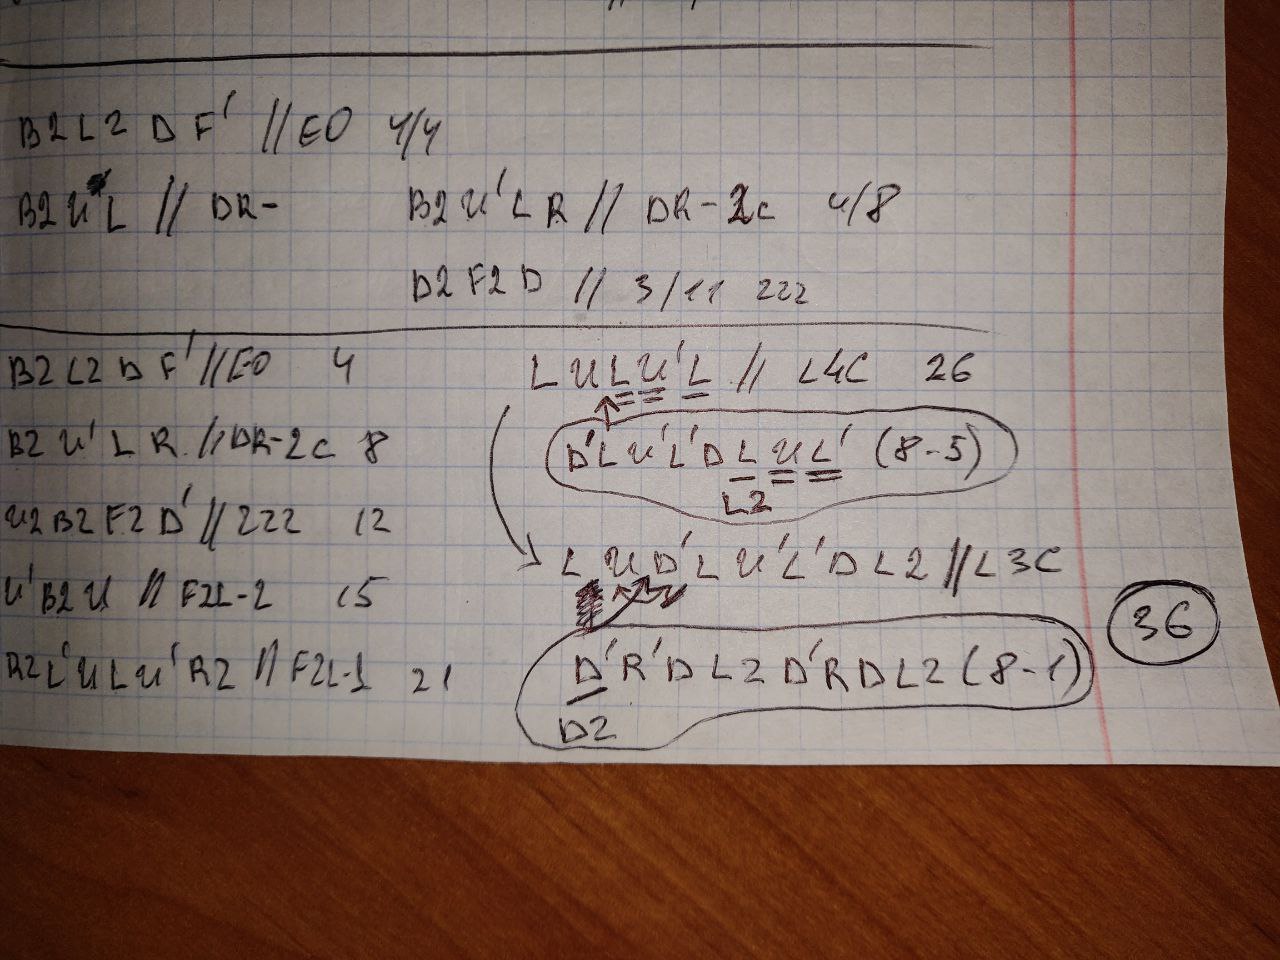 B2 L2 D F' // EO 4/4
B2 U' L // DR- B2 U' L R // DR-2c 4/8
D2 F2 D // 3/11 222
B2 L2 D F' // EO 4
B2 U' L R // DR-2c 8
U2 B2 F2 D' // 222 12
U' B2 U // F2L-2 15
R2 L' U L U' R2 // F2L-1 21
L U L U' L // L4C 26
D' L U' L' D L U L' (8-5)
L2
L U D' L U' L' D L2 // L3C
D' R' D L2 D' R D L2 (8-1)
D2
36